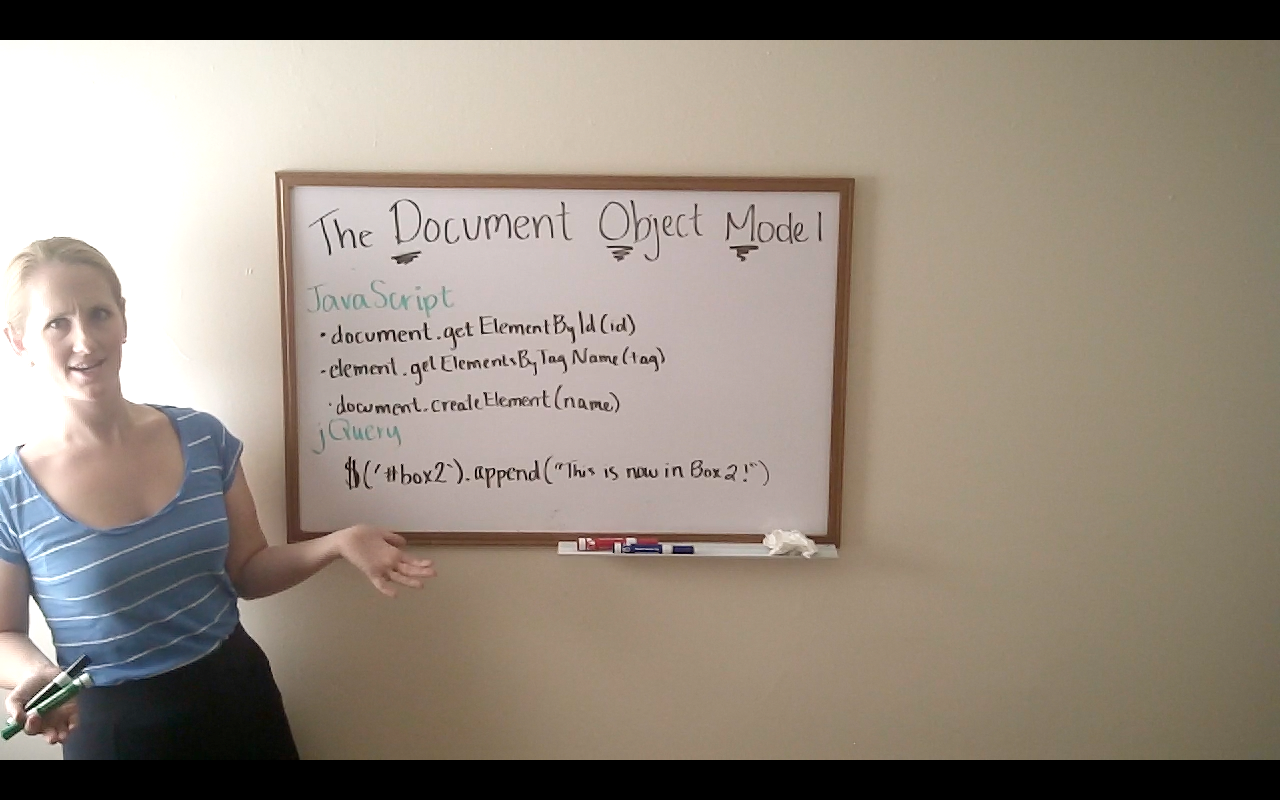 The Document Object Model
JavaScript
· document.getElementById(id)
- element.getElementsByTagName(tag)
· document.createElement(name)
jQuery
$('#box2').append("This is now in Box 2!")